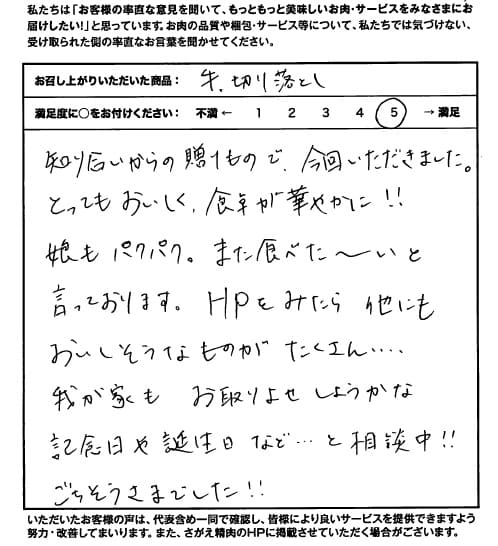 私たちは「お客様の率直な意見を聞いて、もっともっと美味しいお肉・サービスをみなさまにお
届けしたい！」と思っています。お肉の品質や梱包・サービス等について、私たちでは気づけない、
受け取られた側の率直なお言葉を聞かせてください。
お召し上がりいただいた商品： 牛、切り落とし
満足度に○をお付けください： 不満 ← 1 2 3 4 5 → 満足
知り合いからの贈りもので、今回いただきました。
とってもおいしく、食卓が華やかに！！
娘もパクパク。また食べた〜いと
言っております。HPをみたら他にも
おいしそうなものがたくさん‥‥
我が家も お取りよせしようかな
記念日や誕生日など…と相談中!!
ごちそうさまでした!!
いただいたお客様の声は、代表含め一同で確認し、皆様により良いサービスを提供できますよう
努力・改善してまいります。また、さがえ精肉のHPに掲載させていただく場合がございます。